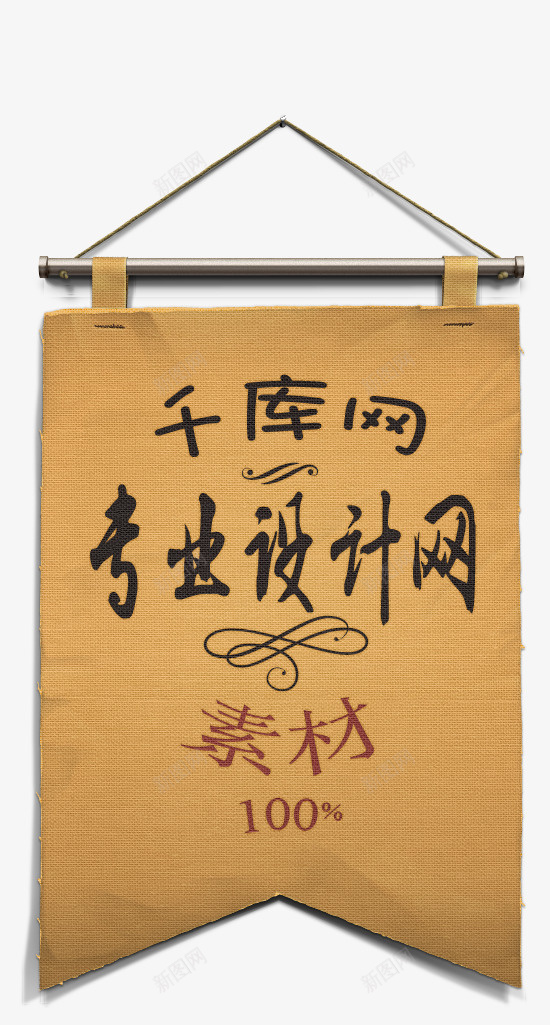 千库网
专业设计网
素材
100%
新图网
新图网
新图网
新图网